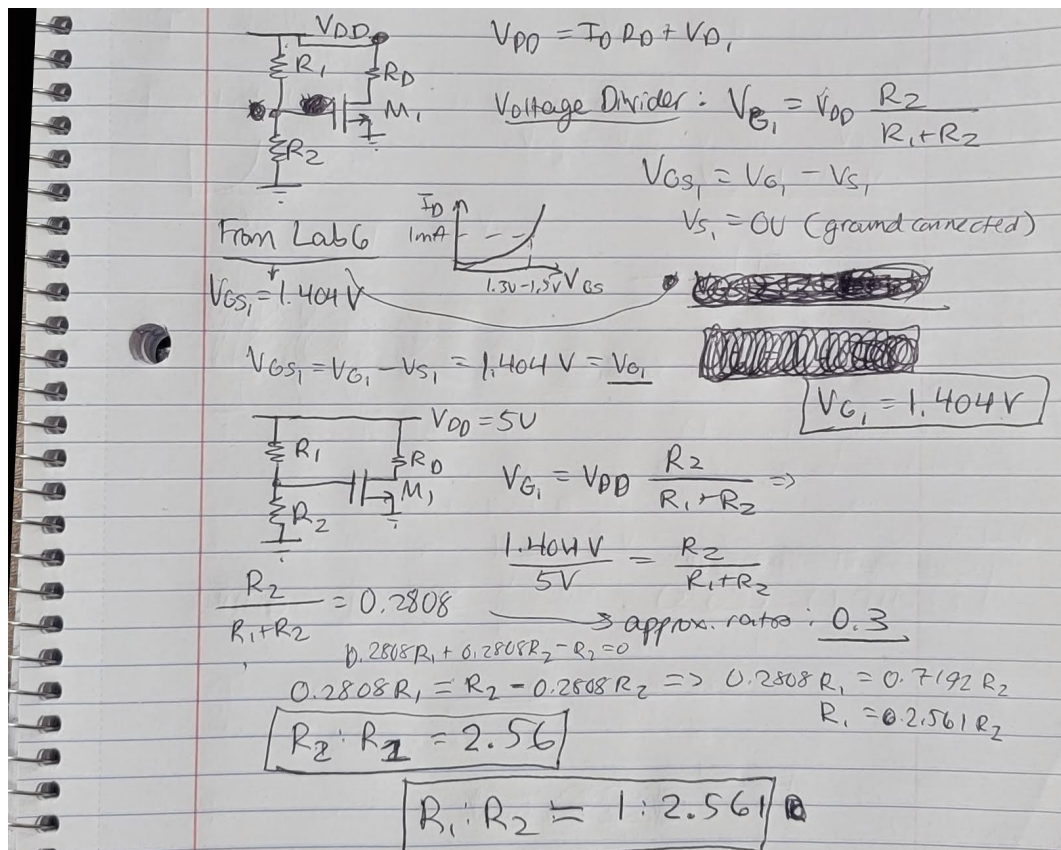 VDD
VDD = ID RD + VD1
R1
RD
M1
R2
Voltage Divider : VG1 = VDD R2 / R1+R2
VGS1 = VG1 - VS1
VS1 = 0V (ground connected)
From Lab 6
ID
1mA
1.3V-1.5V VGS
VGS1 = 1.404 V
VGS1 = VG1 - VS1 = 1.404 V = VG1
VG1 = 1.404 V
VDD = 5V
R1
RD
M1
R2
VG1 = VDD R2 / R1+R2 =>
1.404 V / 5V = R2 / R1+R2
R2 / R1+R2 = 0.2808
approx. ratio : 0.3
0.2808R1 + 0.2808R2 - R2 = 0
0.2808 R1 = R2 - 0.2808 R2 => 0.2808 R1 = 0.7192 R2
R1 = 2.561 R2
R2 : R1 = 2.56
R1 : R2 = 1 : 2.561